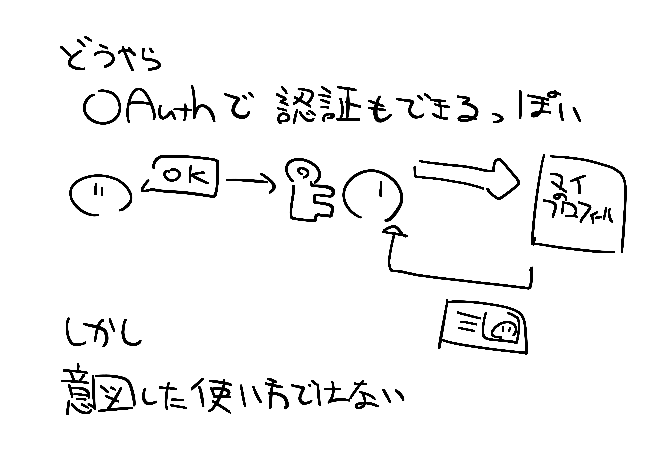 どうやら
OAuthで認証もできるっぽい
OK
マイ
の
プロフィール
しかし
意図した使い方ではない